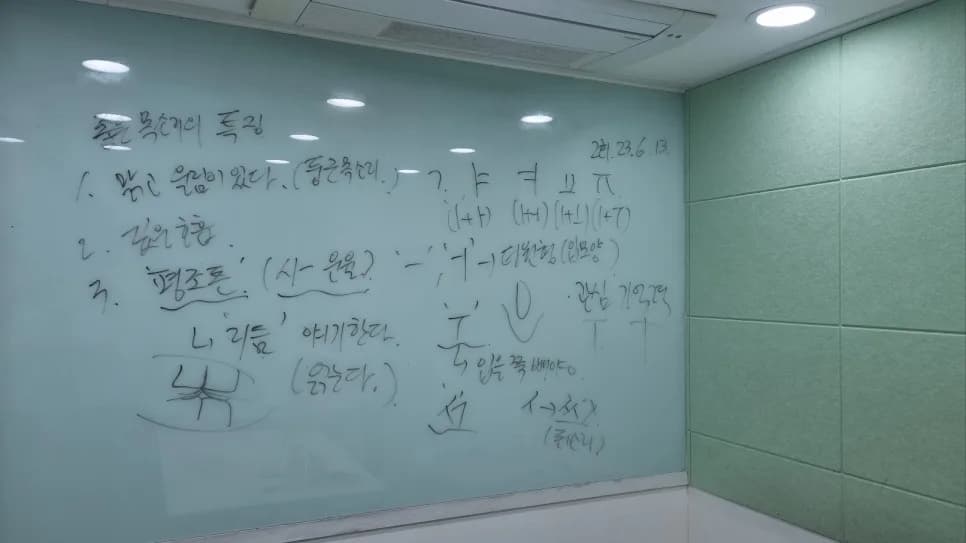 좋은 목소리의 특징
1. 맑고 울림이 있다. (둥근목소리.)
2. 깊은 호흡.
3. '평조톤' (시- 운율?)
ㄴ '리듬' 이야기한다.
(읽는다.)
23. 6. 13.
ㄱ. ㅑ ㅕ ㅛ ㅠ
(ㅣ+ㅏ) (ㅣ+ㅓ) (ㅣ+ㅗ) (ㅣ+ㅜ)
'ㅡ', 'ㅓ' → 타원형 (입모양)
'ㅜ'
입을 쭉 빼야
· 관심 기억력